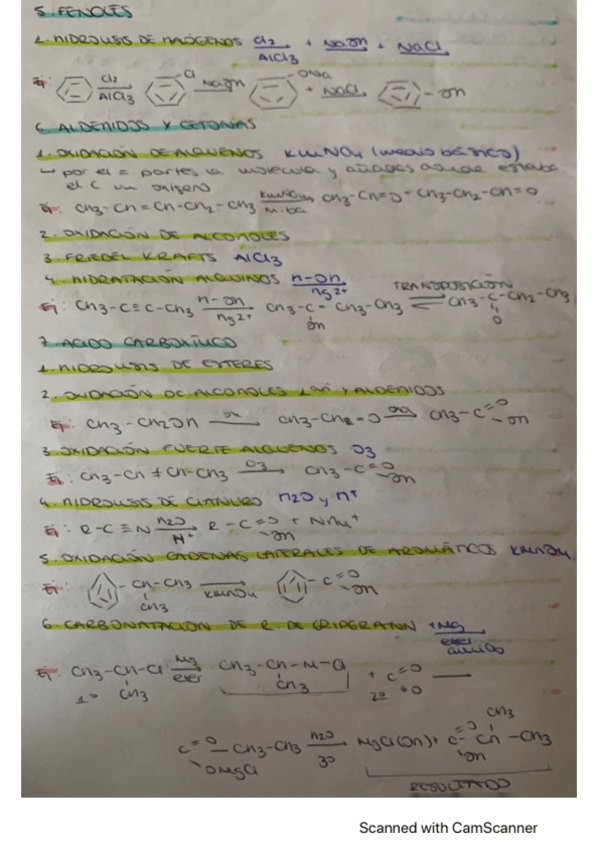 5. FENOLES
1. HIDROLISIS DE HALÓGENOS Cl2 AlCl3 + NaOH + NaCl
Ej: Cl2 AlCl3 Cl NaOH ONa + NaCl OH
6. ALDEHIDOS Y CETONAS
1. OXIDACIÓN DE ALQUENOS KMnO4 (medio básico)
por el = partes la molecula y añades donde estaba
el C un oxígeno
Ej: CH3-CH=CH-CH2-CH3 KMnO4 M.ba CH3-CH=O + CH3-CH2-CH=O
2. OXIDACIÓN DE ALCOHOLES
3. FRIEDEL KRAFTS AlCl3
4. HIDRATACIÓN ALQUINOS H-OH Hg2+
TRANSPOSICIÓN
Ej: CH3-C≡C-CH3 H-OH Hg2+ CH3-C= CH3-CH3 ⇌ CH3-C-CH2-CH3
OH O
7. ACIDO CARBOXÍLICO
1. HIDROLISIS DE ESTERES
2. OXIDACIÓN DE ALCOHOLES Y ALDEHIDOS
Ej: CH3-CH2OH CH3-CH2=O CH3-C=O -OH
3. OXIDACIÓN FUERTE ALQUENOS O3
Ej: CH3-CH≠CH-CH3 O3 CH3-C=O -OH
4. HIDROLISIS DE CIANURO H2O y H+
Ej: R-C≡N H2O H+ R-C=O -OH + NH4+
5. OXIDACIÓN CADENAS LATERALES DE AROMÁTICOS KMnO4
Ej: -CH-CH3 CH3 KMnO4 -C=O -OH
6. CARBONATACION DE R. DE GRIGNARD +Mg eter
Ej: CH3-CH-Cl Mg eter CH3-CH-M-Cl + C=O
1º CH3 CH3 2º =O
CH3
C=O -CH3-CH3 H2O MgCl(OH) + C=O CH -CH3
OMgCl 3º OH
RESULTADO
Scanned with CamScanner